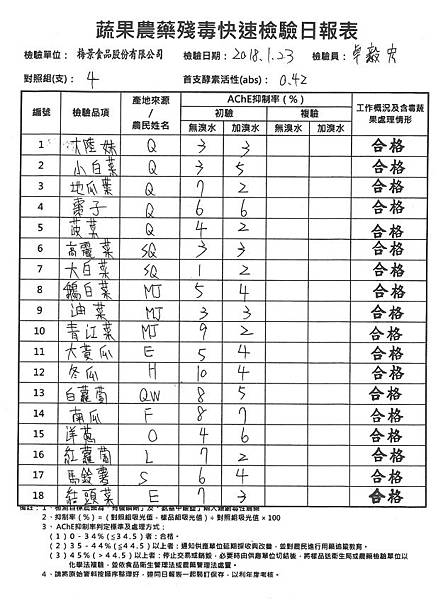 蔬果農藥殘毒快速檢驗日報表
檢驗單位： 梅景食品股份有限公司 檢驗日期：2018.1.23 檢驗員：
對照組(支)： 4 首支酵素活性(abs)： 0.42
編號 檢驗品項 產地來源/農民姓名 AChE抑制率(%) 工作概況及含毒蔬果處理情形
初驗 複驗
無溴水 加溴水 無溴水 加溴水
1 大陸妹 Q 3 3 合格
2 小白菜 Q 3 5 合格
3 地瓜菜 Q 7 2 合格
4 棗子 Q 6 6 合格
5 菠菜 Q 4 2 合格
6 高麗菜 SQ 3 3 合格
7 大白菜 SQ 1 2 合格
8 鵝白菜 MJ 5 4 合格
9 油菜 MJ 3 3 合格
10 青江菜 MJ 9 2 合格
11 大黃瓜 E 5 4 合格
12 冬瓜 H 10 4 合格
13 白蘿蔔 QW 8 5 合格
14 南瓜 F 8 7 合格
15 洋蔥 O 4 6 合格
16 紅蘿蔔 L 7 2 合格
17 馬鈴薯 S 6 4 合格
18 結頭菜 E 7 3 合格
2、抑制率(%)=(對照組吸光值-樣品組吸光值)÷對照組吸光值×100
3、AChE抑制率判定標準及處理方式：
(1)0-34%(≦34.5)者：合格。
(2)35-44%(≦44.5)以上者：通知供應單位延期採收與改善，並對農民進行用藥追蹤教育。
(3)45%(>44.5)以上者：停止交易或銷毀，必要時由供應單位切結後，將樣品送衛生局或農藥檢驗單位以
化學法複驗，並依食品衛生管理法或農藥管理法處置。
4、請將原始資料按操作整理好，連同日報表一起裝訂保存，以利年度考核。